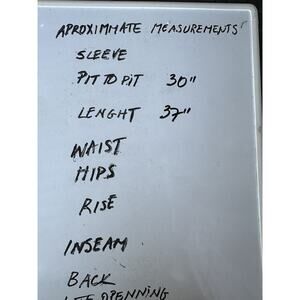 APROXIMMATE MEASUREMENTS
SLEEVE
PIT TO PIT 30"
LENGHT 37"
WAIST
HIPS
RISE
INSEAM
BACK
OPENNING